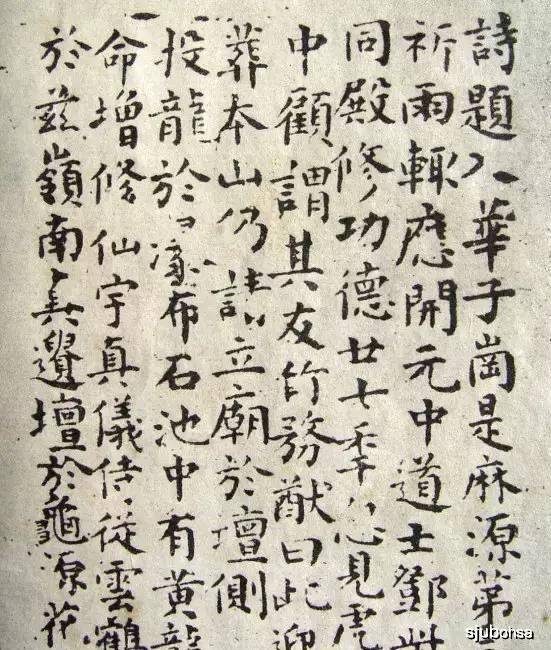 詩題入華子崗是麻源第
祈雨輒應開元中道士鄧
同殿修功德廿七年忽見虎
中顧謂其友竹務猷曰此迎
葬本山仍請立廟於壇側
投龍於瀑布石池中有黃龍
命增修仙宇真儀侍從雲鶴
於茲嶺南真遺壇於龜源花
sjubohsa